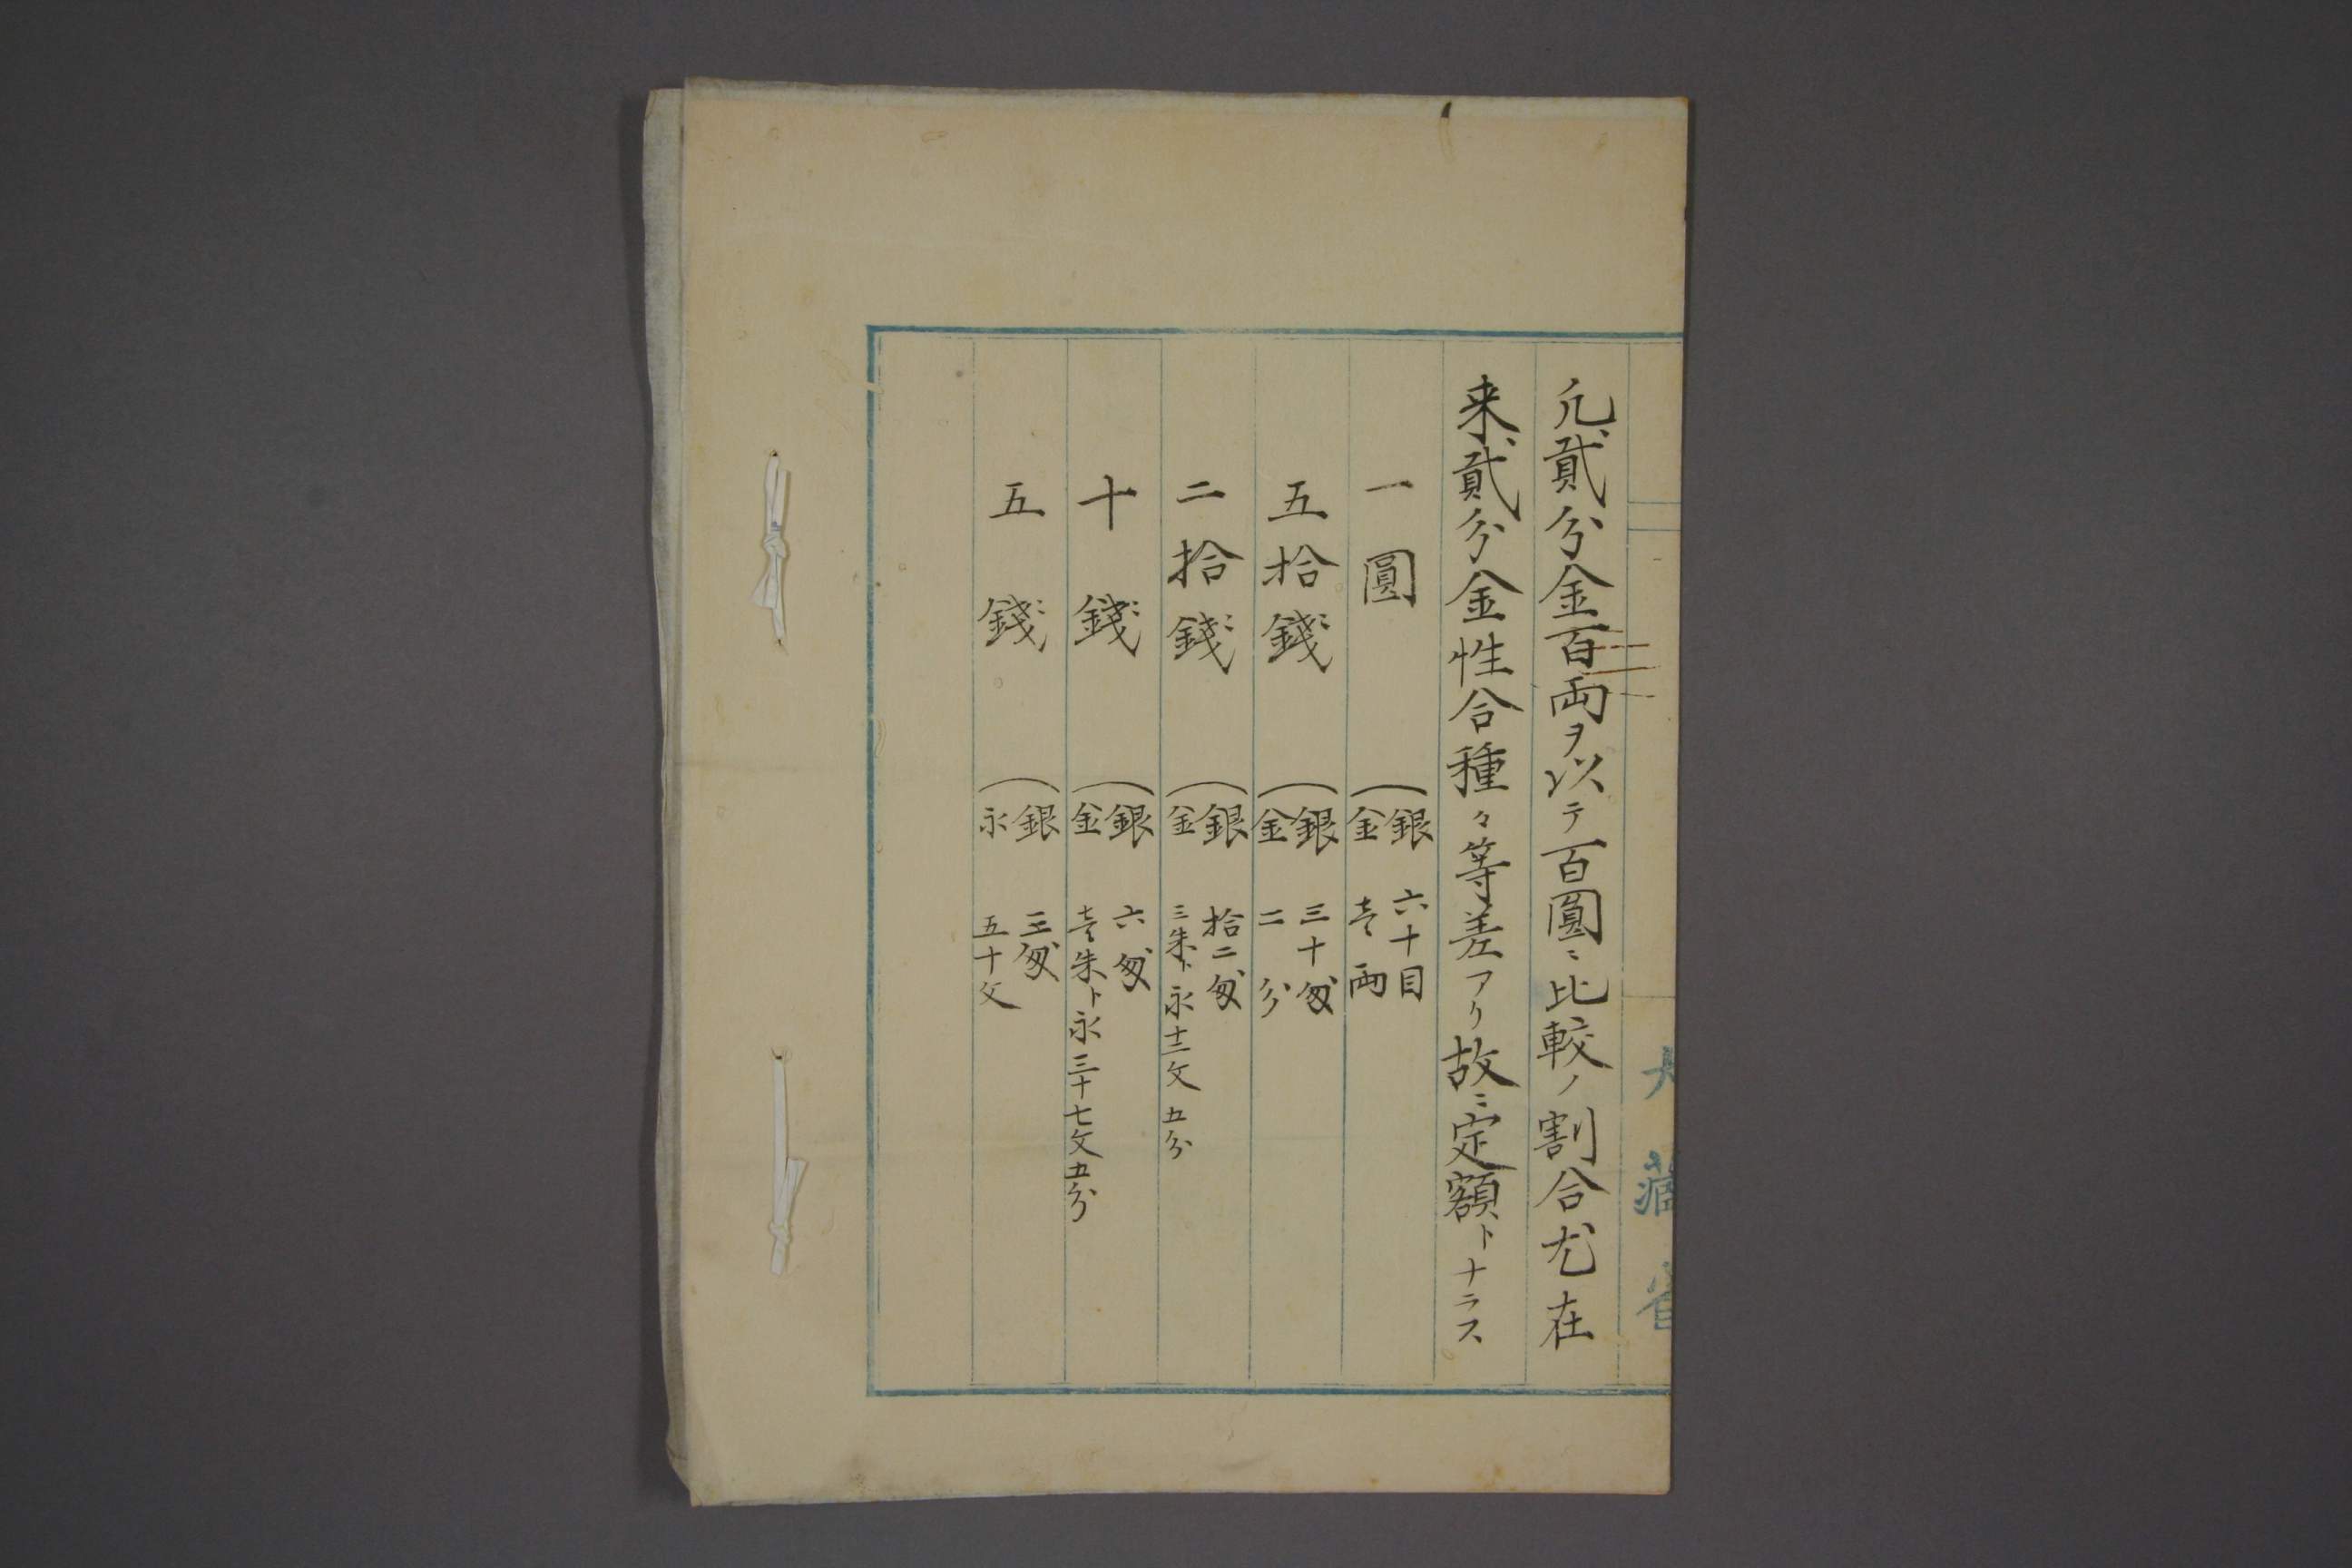 大藏省
凢貳分金百両ヲ以テ百圓ニ比較ノ割合尤在
来貳分金性合種々等差アリ故ニ定額トナラス
一圓
銀 六十目
金 壱両
五拾錢
銀 三十匁
金 二分
二拾錢
銀 拾二匁
金 三朱ト永十二文五分
十錢
銀 六匁
金 壱朱ト永三十七文五分
五錢
銀 三匁
永 五十文